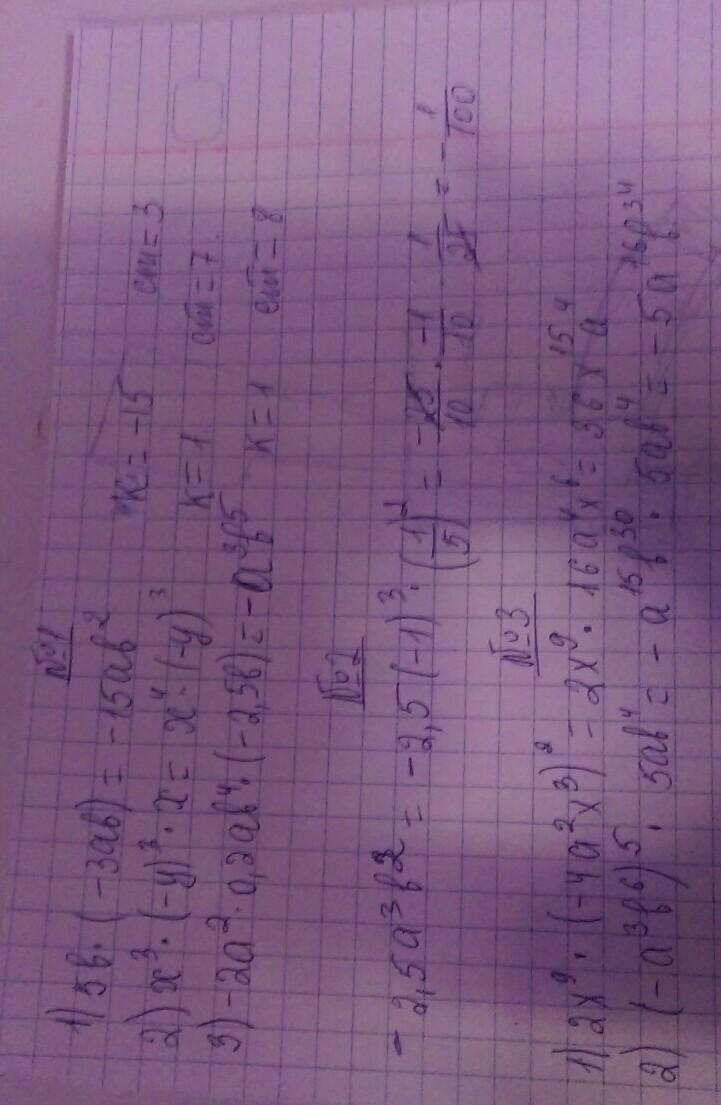 №1
1) 5b·(-3ab) = -15ab²   к = -15   ст = 3
2) x³·(-y)³·x = x⁴·(-y)³   к = 1   ст = 7.
3) -2a²·0,2ab⁴·(-2,5b) = -a³b⁵   к = 1   ст = 8
№2
-2,5a³b² = -2,5(-1)³·(1/5)² = -25/10·-1/10·1/25 = -1/100
№3
1) 2x⁹·(-4a²x³)² = 2x⁹·16a⁴x⁶ = 36x¹⁵a⁴
2) (-a³b⁶)⁵·5ab⁴ = -a¹⁵b³⁰·5ab⁴ = -5a¹⁶b³⁴